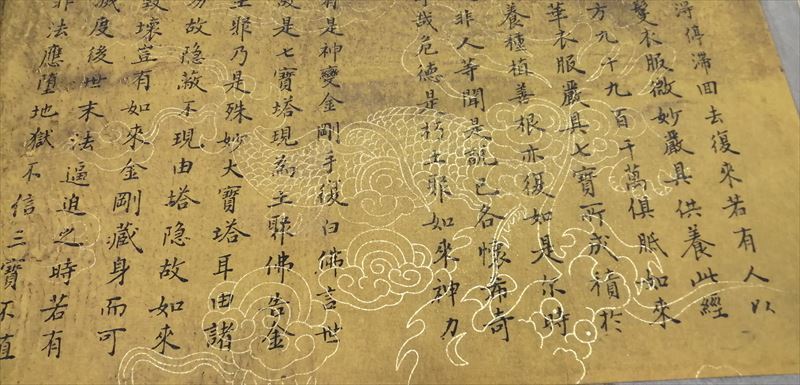 淂停滯回去復來若有人以
髮衣服微妙嚴具供養此經
方九十九百千萬俱胝如來
華衣服嚴具七寶所成積於
養種植善根亦復如是尓時
非人等聞是說已各懷希奇
哉危德是朽土耶如來神力
有是神變金剛手復白佛言世
故是七寶塔現為土聚佛告金
耶乃是殊妙大寶塔耳由諸
故隱蔽不現由塔隱故如來
毀壞豈有如來金剛藏身而可
滅度後世末法逼迫之時若有
非法應墮地獄不信三寶不直